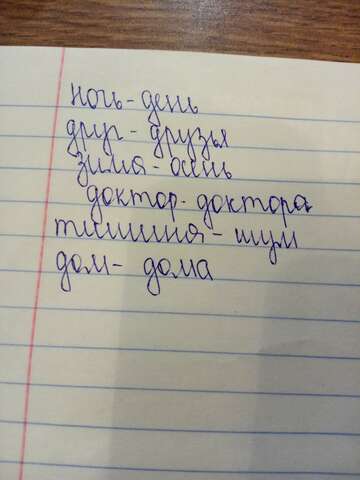 ночь-день
друг - друзья
зима - осень
доктор- доктора
тишина - шум
дом- дома